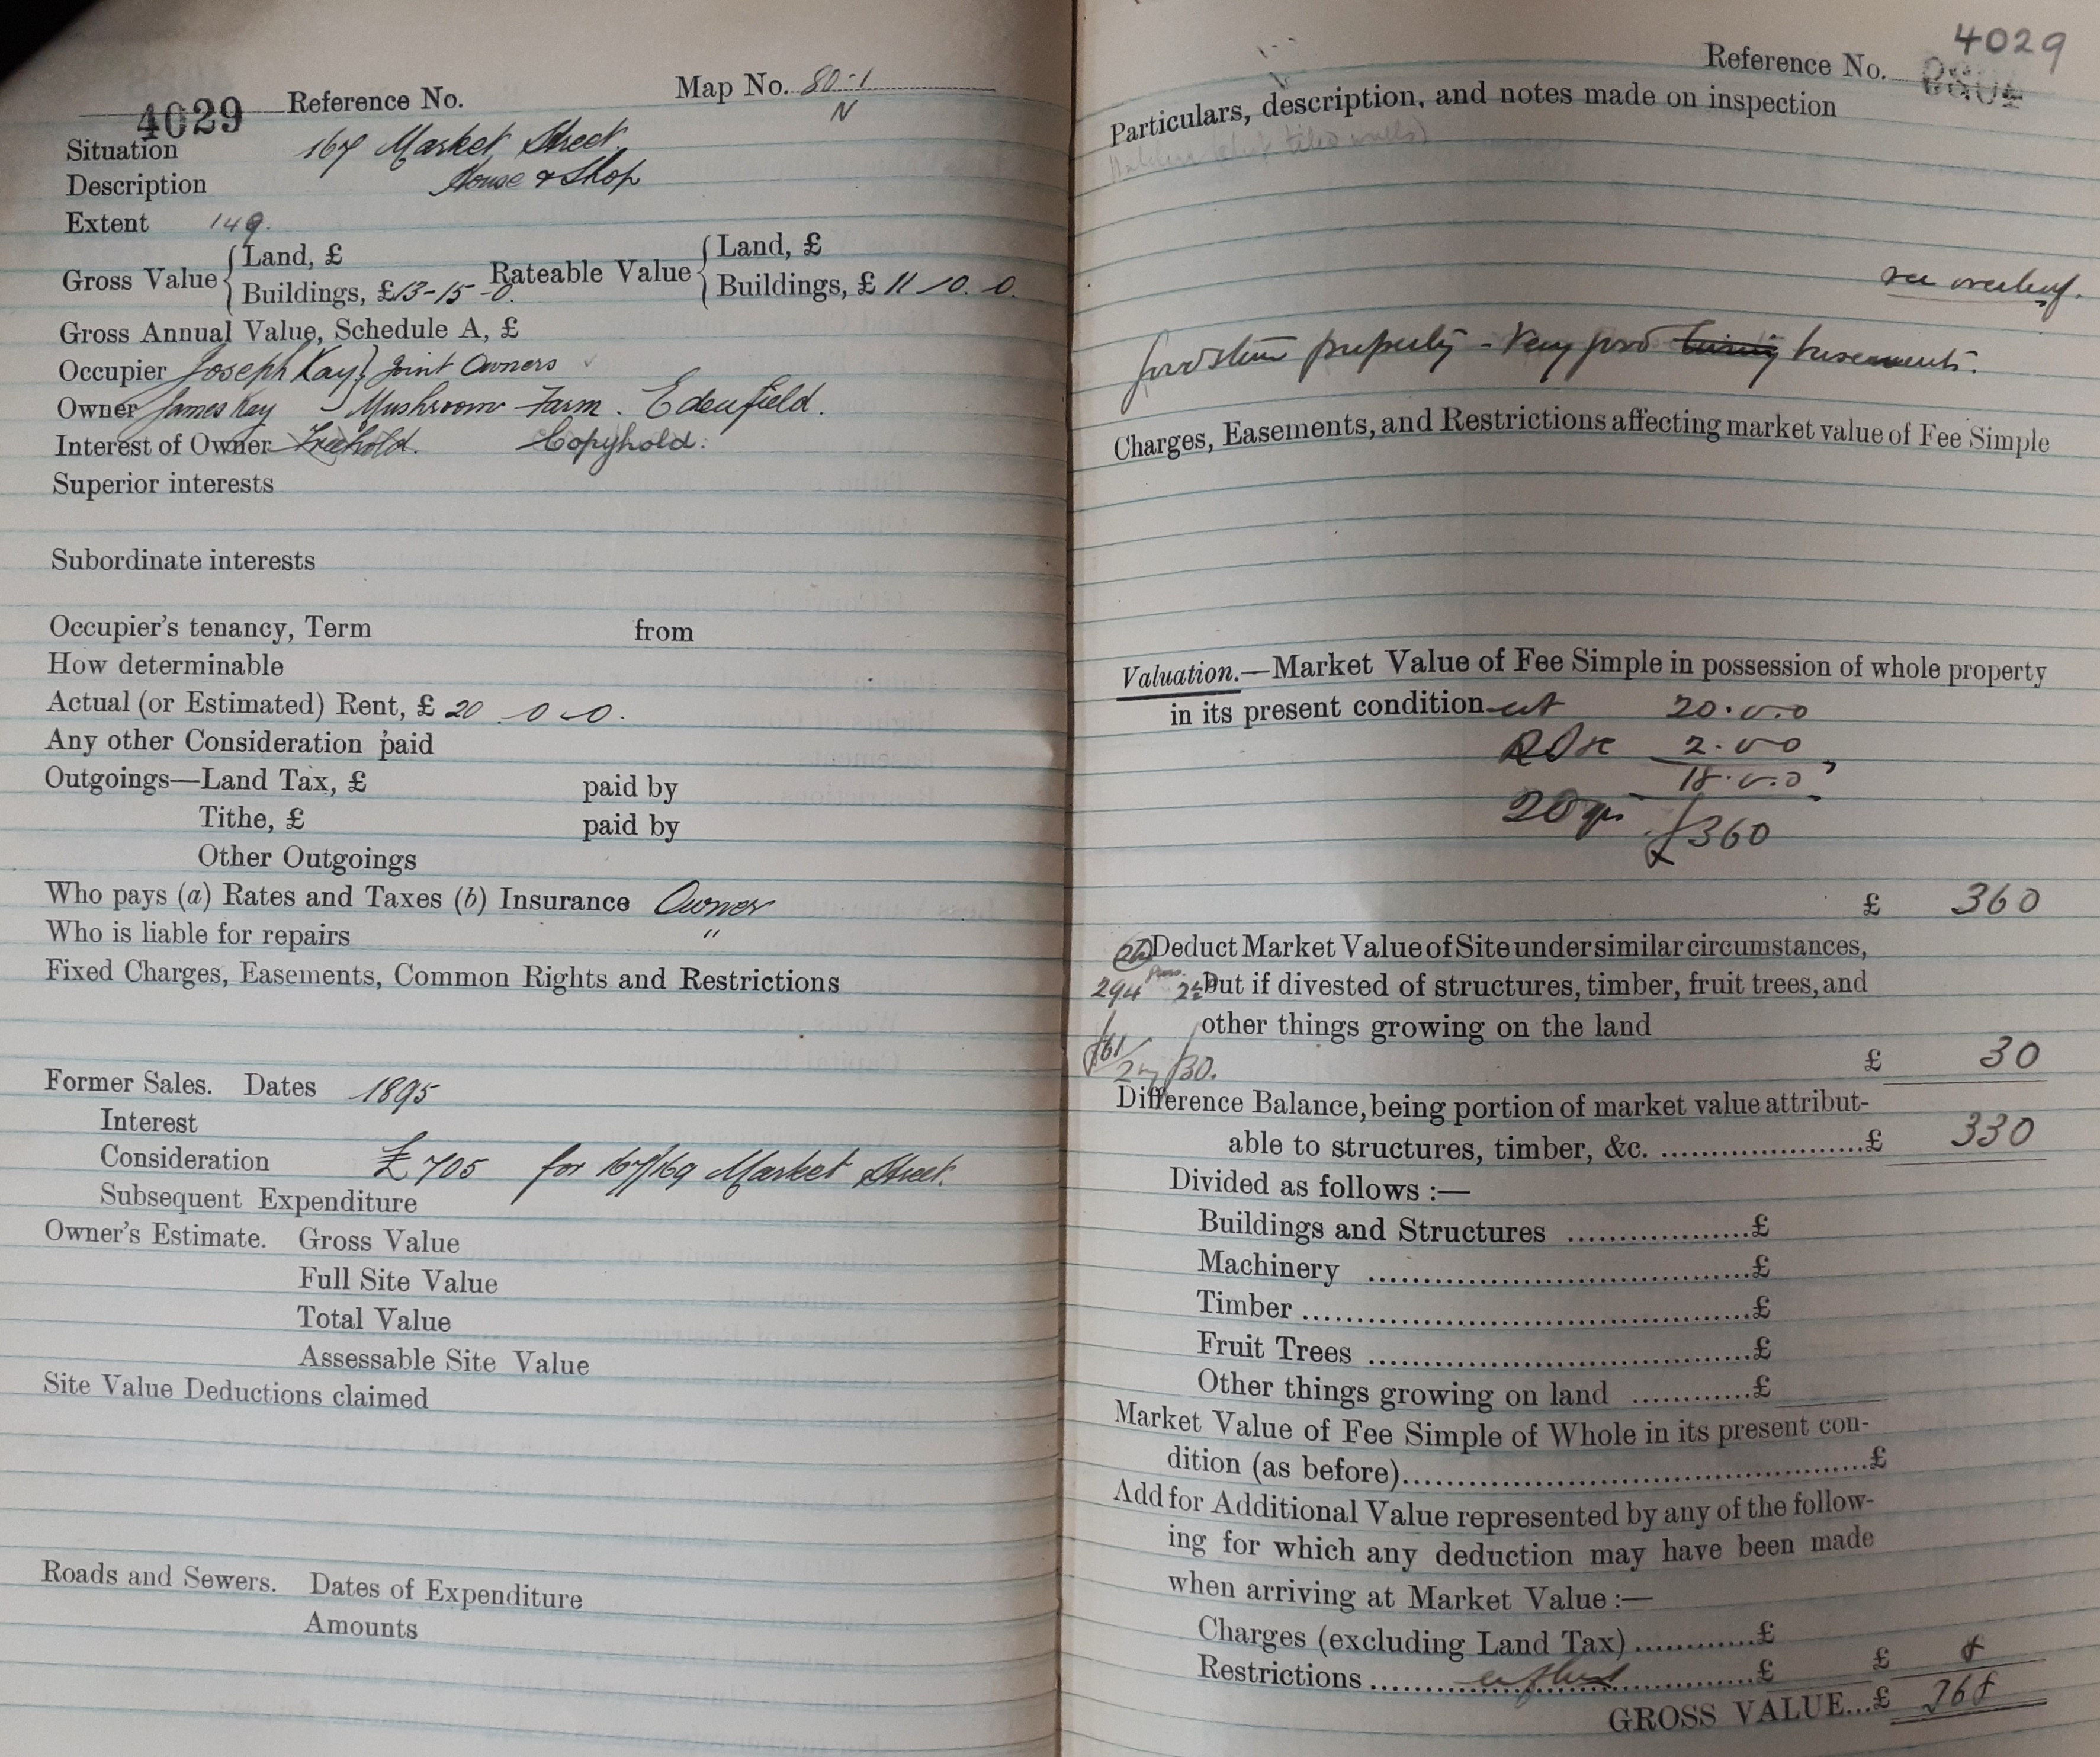 4029 Reference No. Map No. 80-1
N
Situation 167 Market Street.
Description House & Shop
Extent 149.
Gross Value { Land, £
Buildings, £13-15-0. Rateable Value { Land, £
Buildings, £ 11 10. 0.
Gross Annual Value, Schedule A, £
Occupier Joseph Kay } Joint Owners
Owner James Kay } Mushroom Farm. Edenfield.
Interest of Owner Freehold. Copyhold.
Superior interests
Subordinate interests
Occupier's tenancy, Term from
How determinable
Actual (or Estimated) Rent, £ 20 . 0 . 0.
Any other Consideration paid
Outgoings—Land Tax, £ paid by
Tithe, £ paid by
Other Outgoings
Who pays (a) Rates and Taxes (b) Insurance Owner
Who is liable for repairs "
Fixed Charges, Easements, Common Rights and Restrictions
Former Sales. Dates 1895
Interest
Consideration £705 for 167/169 Market Street.
Subsequent Expenditure
Owner's Estimate. Gross Value
Full Site Value
Total Value
Assessable Site Value
Site Value Deductions claimed
Roads and Sewers. Dates of Expenditure
Amounts
4029
Reference No.
Particulars, description, and notes made on inspection
see overleaf.
property - Very good basements.
Charges, Easements, and Restrictions affecting market value of Fee Simple
Valuation.—Market Value of Fee Simple in possession of whole property
in its present condition at 20.0.0
2.0.0
18.0.0
20 yrs £360
£ 360
Deduct Market Value of Site under similar circumstances,
294 2½ but if divested of structures, timber, fruit trees, and
other things growing on the land
£61/2 £30.
£ 30
Difference Balance, being portion of market value attribut-
able to structures, timber, &c. ....................£ 330
Divided as follows :—
Buildings and Structures ..................£
Machinery ......................................£
Timber .............................................£
Fruit Trees ......................................£
Other things growing on land ............£
Market Value of Fee Simple of Whole in its present con-
dition (as before)..............................................£
Add for Additional Value represented by any of the follow-
ing for which any deduction may have been made
when arriving at Market Value :—
Charges (excluding Land Tax)............£
Restrictions ......................................£ £ 8
GROSS VALUE...£ 368